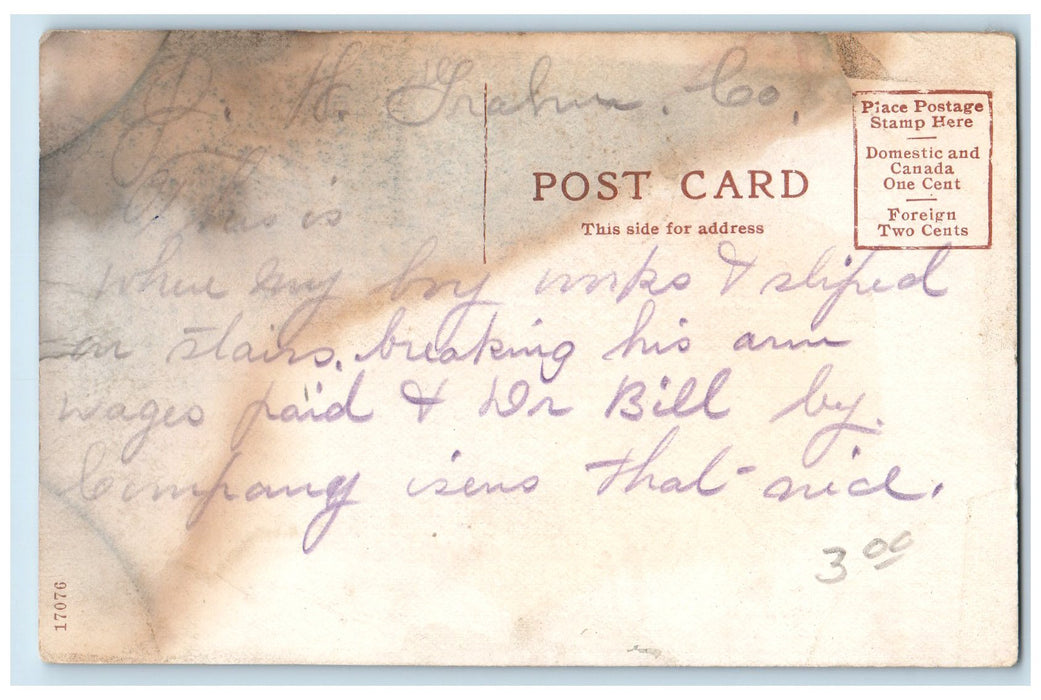 J. H. Graham. Co,
POST CARD
This side for address
Place Postage
Stamp Here
Domestic and
Canada
One Cent
Foreign
Two Cents
This is
where my boy works & sliped
on stairs. breaking his arm
wages paid & Dr Bill by.
Company isens that nice.
3 00
17076